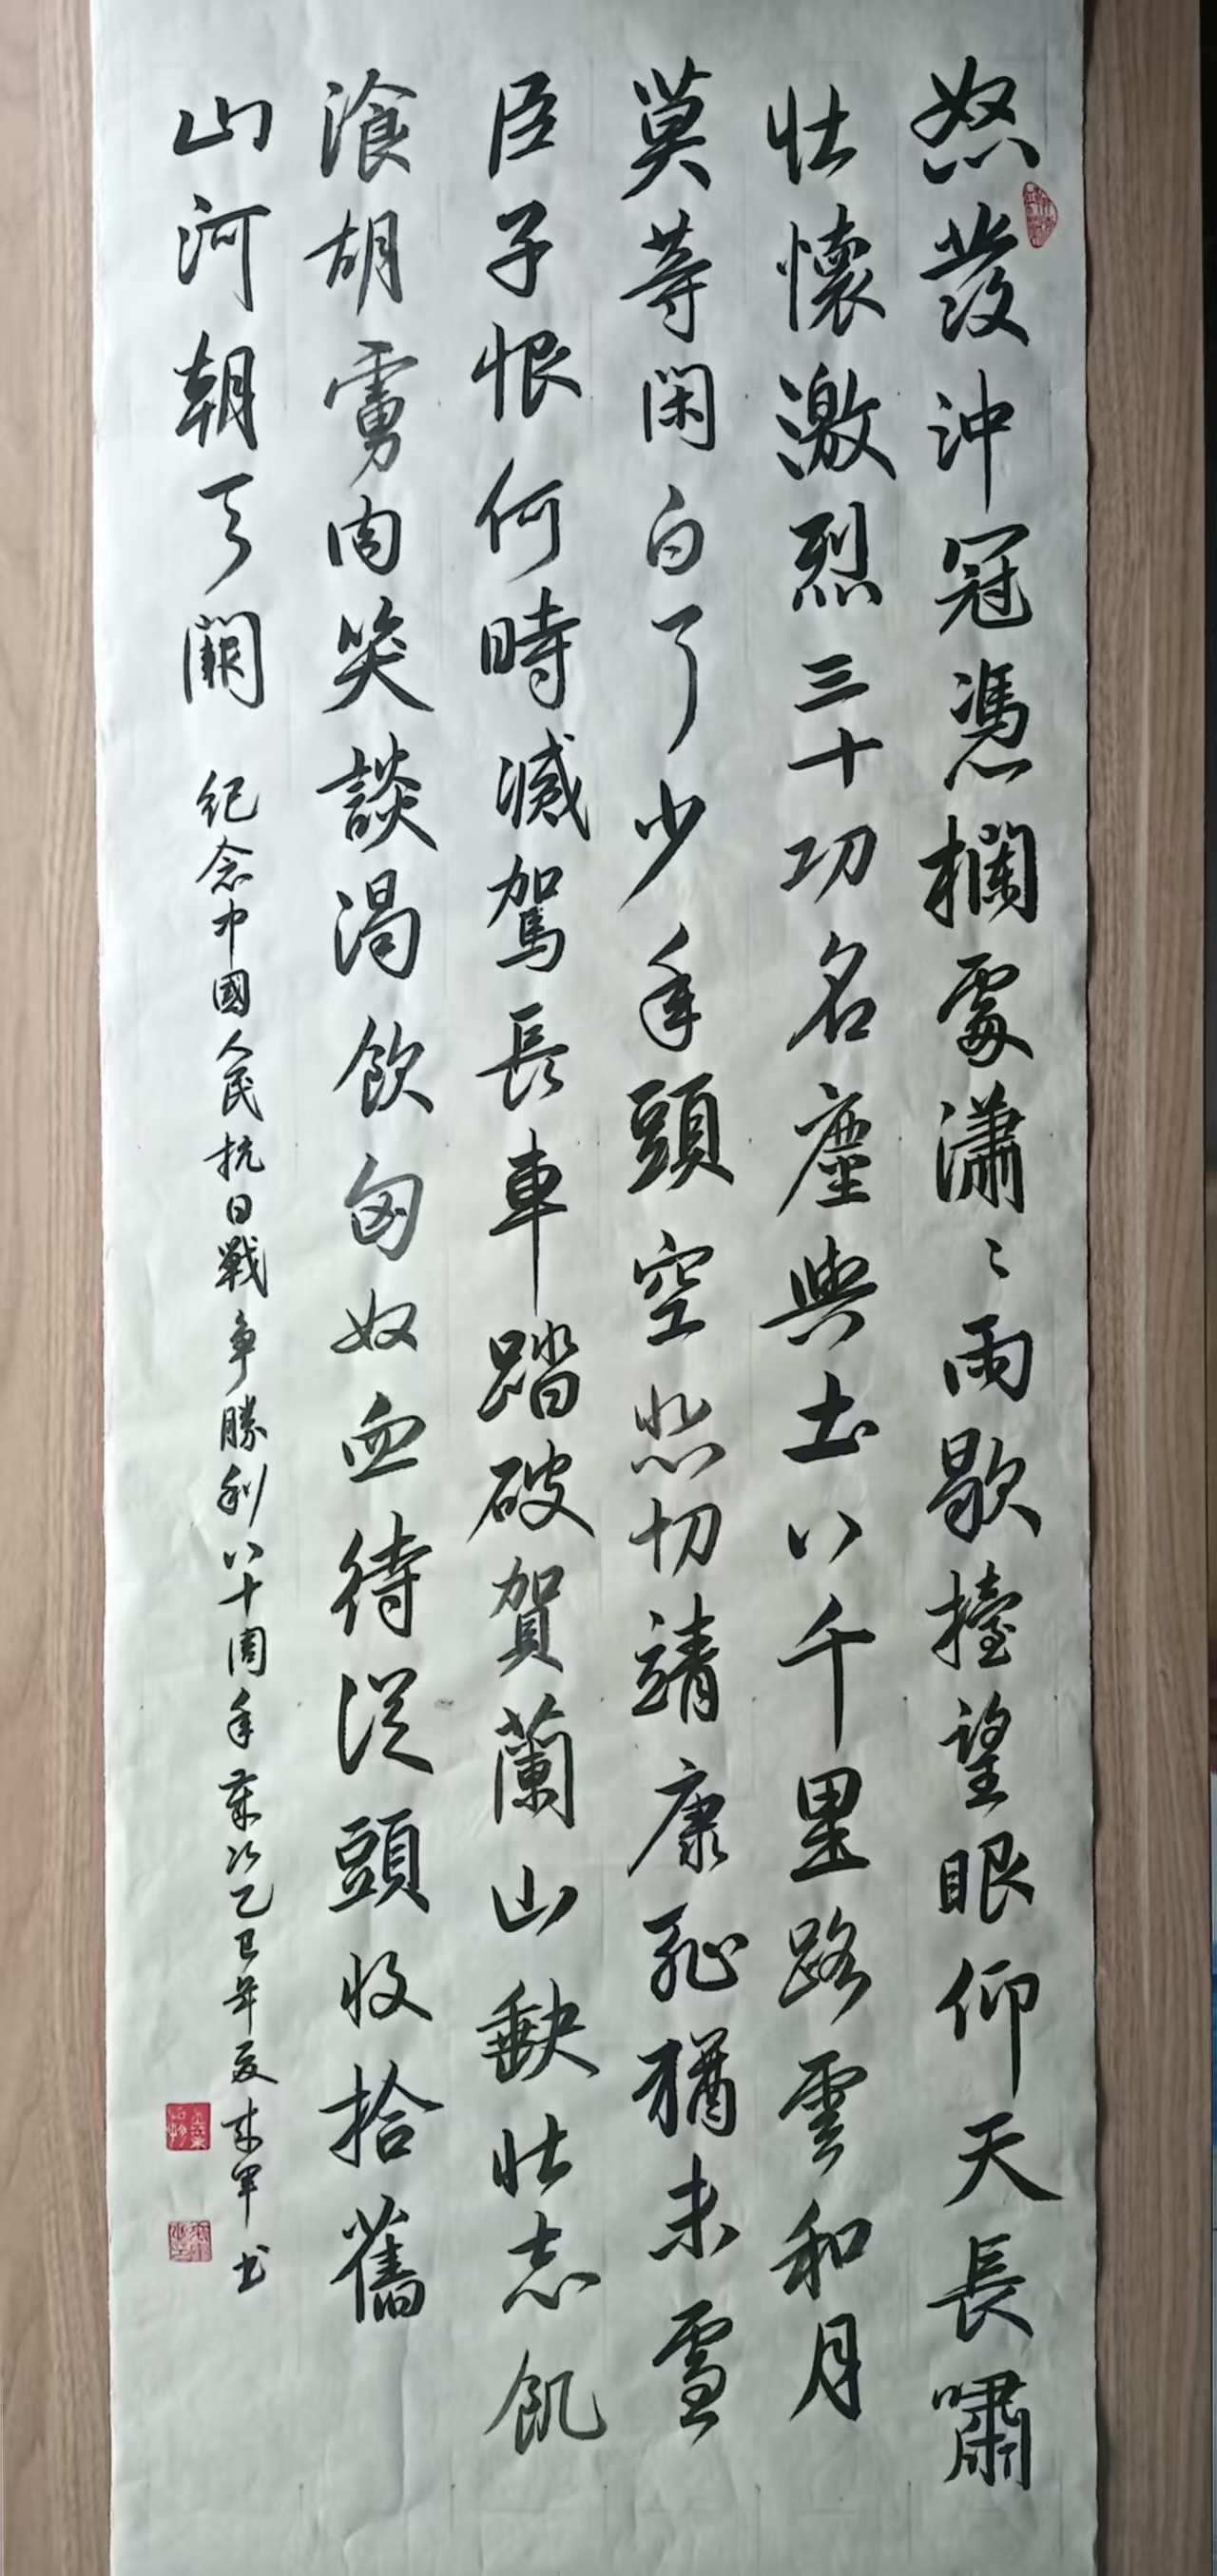 怒髮沖冠憑欄處瀟〻雨歇擡望眼仰天長嘯
壯懷激烈三十功名塵與土八千里路雲和月
莫等閑白了少年頭空悲切靖康恥猶未雪
臣子恨何時滅駕長車踏破賀蘭山缺壯志飢
飡胡虜肉笑談渴飲匈奴血待從頭收拾舊
山河朝天闕
紀念中國人民抗日戰爭勝利八十周年歲次乙巳年夏書